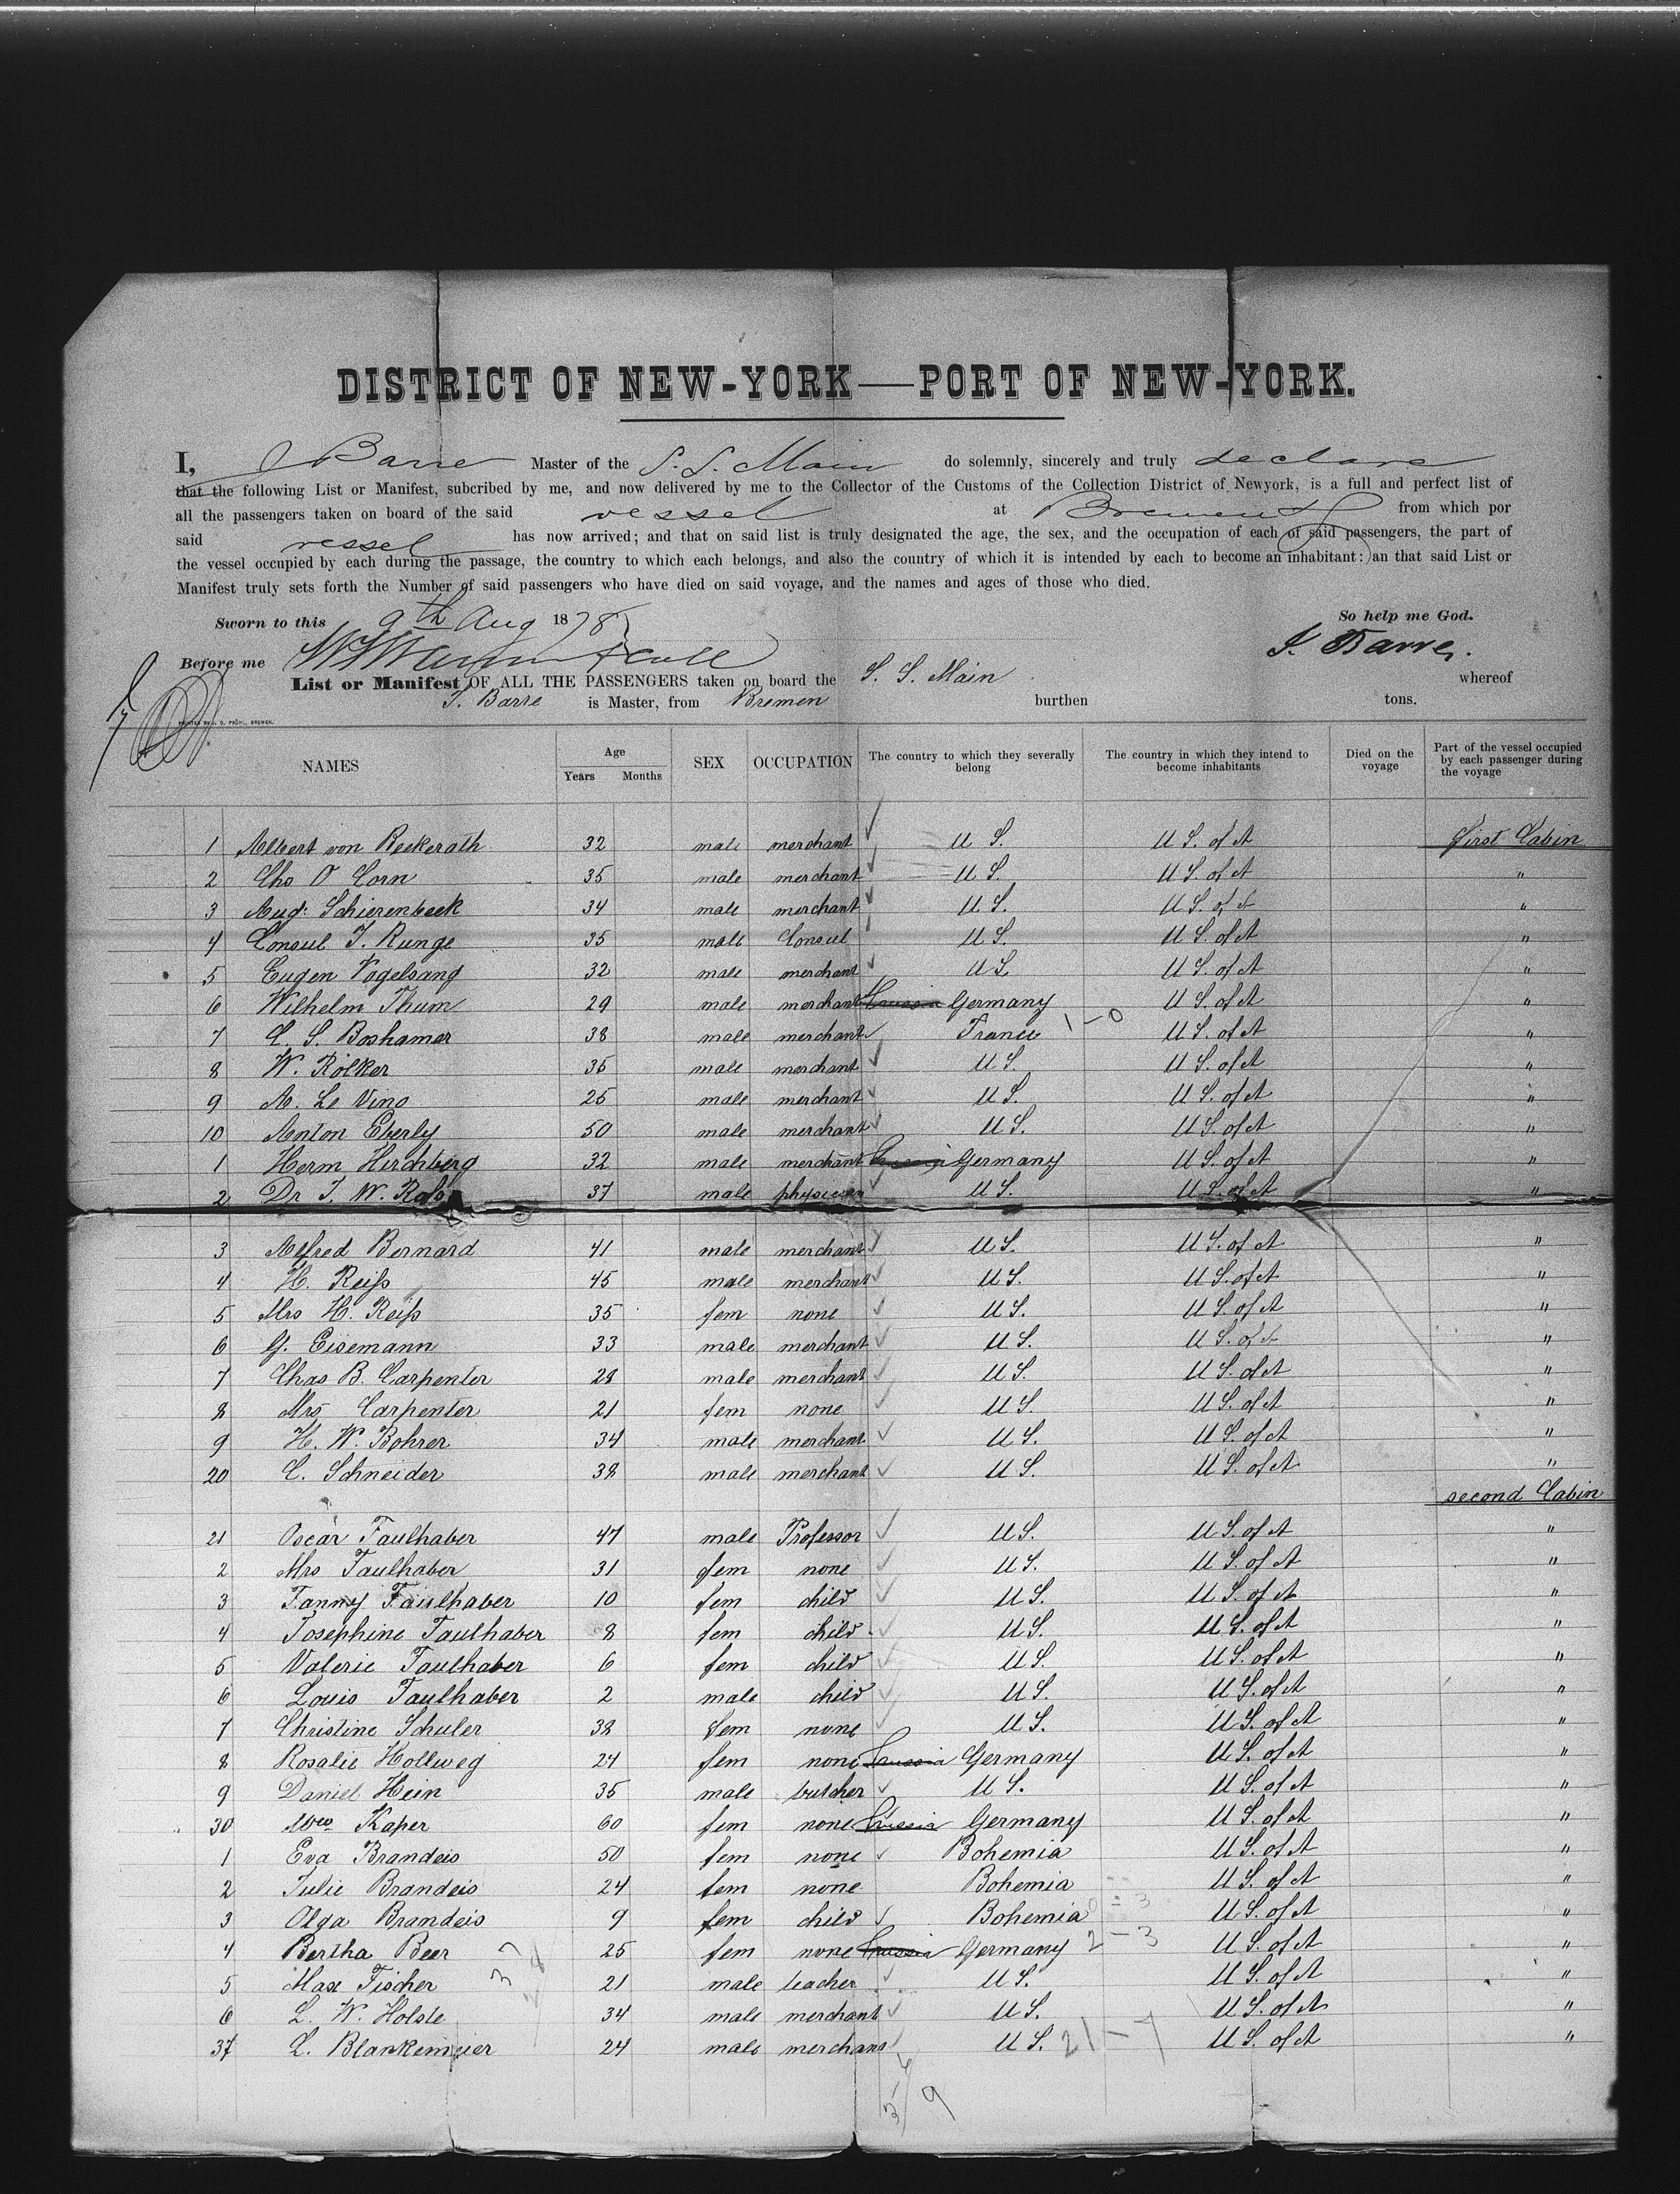 DISTRICT OF NEW-YORK—PORT OF NEW-YORK.
I, J Barre Master of the S. S. Main do solemnly, sincerely and truly declare
that the following List or Manifest, subcribed by me, and now delivered by me to the Collector of the Customs of the Collection District of Newyork, is a full and perfect list of
all the passengers taken on board of the said vessel at Bremen from which por
said vessel has now arrived; and that on said list is truly designated the age, the sex, and the occupation of each of said passengers, the part of
the vessel occupied by each during the passage, the country to which each belongs, and also the country of which it is intended by each to become an inhabitant: an that said List or
Manifest truly sets forth the Number of said passengers who have died on said voyage, and the names and ages of those who died.
Sworn to this 9th Aug 1878 So help me God.
Before me J. Barre.
List or Manifest OF ALL THE PASSENGERS taken on board the S. S. Main whereof
J. Barre is Master, from Bremen burthen tons.
PRINTED BY J. D. FRÜHL, BREMEN.
NAMES Age Years Months SEX OCCUPATION The country to which they severally belong The country in which they intend to become inhabitants Died on the voyage Part of the vessel occupied by each passenger during the voyage
1 Albert von Reckerath 32 male merchant U S. U S. of A First Cabin
2 Chs O Corn 35 male merchant U S. U S. of A "
3 Aug: Schierenbeck 34 male merchant U S. U S. of A "
4 Consul J. Runge 35 male Consul U S. U S. of A "
5 Eugen Vogelsang 32 male merchant U S. U S. of A "
6 Wilhelm Thum 29 male merchant Prussia Germany U S. of A "
7 C. S. Boshamer 38 male merchant France 1-0 U S. of A "
8 W. Rölker 35 male merchant U S. U S. of A "
9 A. Le Vino 25 male merchant U S. U S. of A "
10 Anton Eberly 50 male merchant U S. U S. of A "
1 Herm Hirchberg 32 male merchant Prussia Germany U S. of A "
2 Dr J. W. Roß 37 male physician U S. U S. of A "
3 Alfred Bernard 41 male merchant U S. U S. of A "
4 H. Reiß 45 male merchant U S. U S. of A "
5 Mrs H. Reiß 35 fem none U S. U S. of A "
6 G. Eisemann 33 male merchant U S. U S. of A "
7 Chas B. Carpenter 28 male merchant U S. U S. of A "
8 Mrs Carpenter 21 fem none U S. U S. of A "
9 H. W. Bohrer 34 male merchant U S. U S. of A "
20 C. Schneider 38 male merchant U S. U S. of A "
second Cabin
21 Oscar Faulhaber 47 male Professor U S. U S. of A "
2 Mrs Faulhaber 31 fem none U S. U S. of A "
3 Fanny Faulhaber 10 fem child U S. U S. of A "
4 Josephine Faulhaber 8 fem child U S. U S. of A "
5 Valerie Faulhaber 6 fem child U S. U S. of A "
6 Louis Faulhaber 2 male child U S. U S. of A "
7 Christine Schuler 38 fem none U S. U S. of A "
8 Rosalie Hollweg 24 fem none Prussia Germany U S. of A "
9 Daniel Hein 35 male butcher U S. U S. of A "
30 Kaper 60 fem none Prussia Germany U S. of A "
1 Eva Brandeis 50 fem none Bohemia U S. of A "
2 Julie Brandeis 24 fem none Bohemia U S. of A "
3 Olga Brandeis 9 fem child Bohemia 0-3 U S. of A "
4 Bertha Beer 25 fem none Prussia Germany 2-3 U S. of A "
5 Max Fischer 21 male teacher U S. U S. of A "
6 L. W. Holste 34 male merchant U S. U S. of A "
37 L. Blankemeier 24 male merchant U S. 21-7 U S. of A "